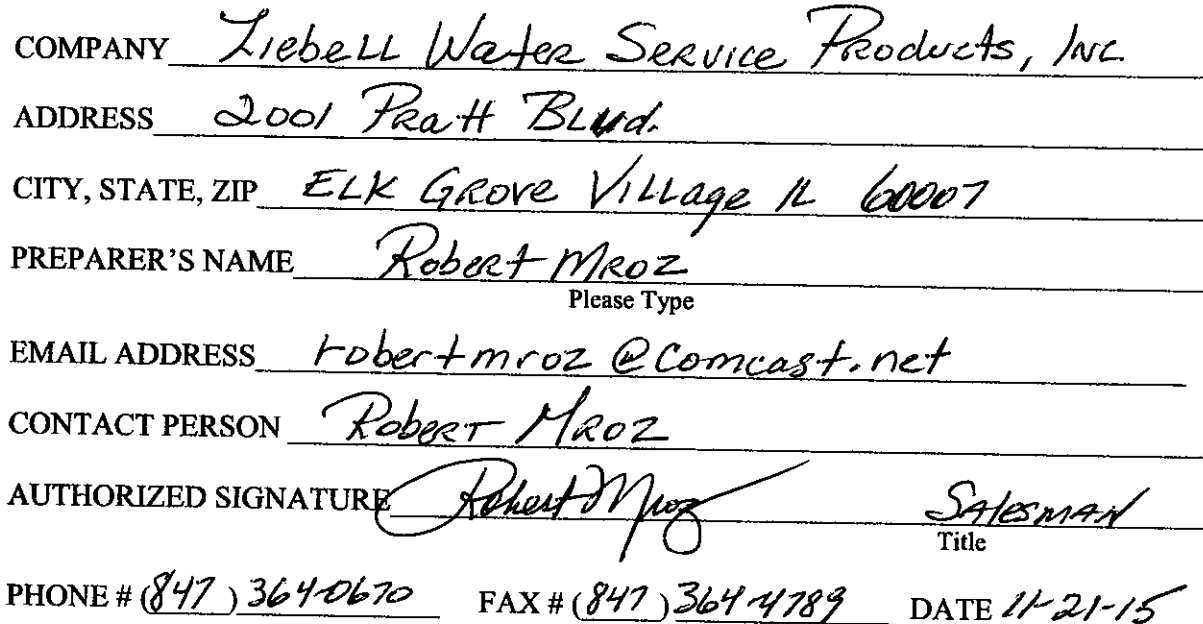 COMPANY Ziebell Water Service Products, Inc
ADDRESS 2001 Pratt Blvd.
CITY, STATE, ZIP Elk Grove Village IL 60007
PREPARER'S NAME Robert Mroz
Please Type
EMAIL ADDRESS robertmroz@comcast.net
CONTACT PERSON Robert Mroz
AUTHORIZED SIGNATURE Robert Mroz Salesman
Title
PHONE # (847) 364-0670 FAX # (847) 364-4789 DATE 11-21-15